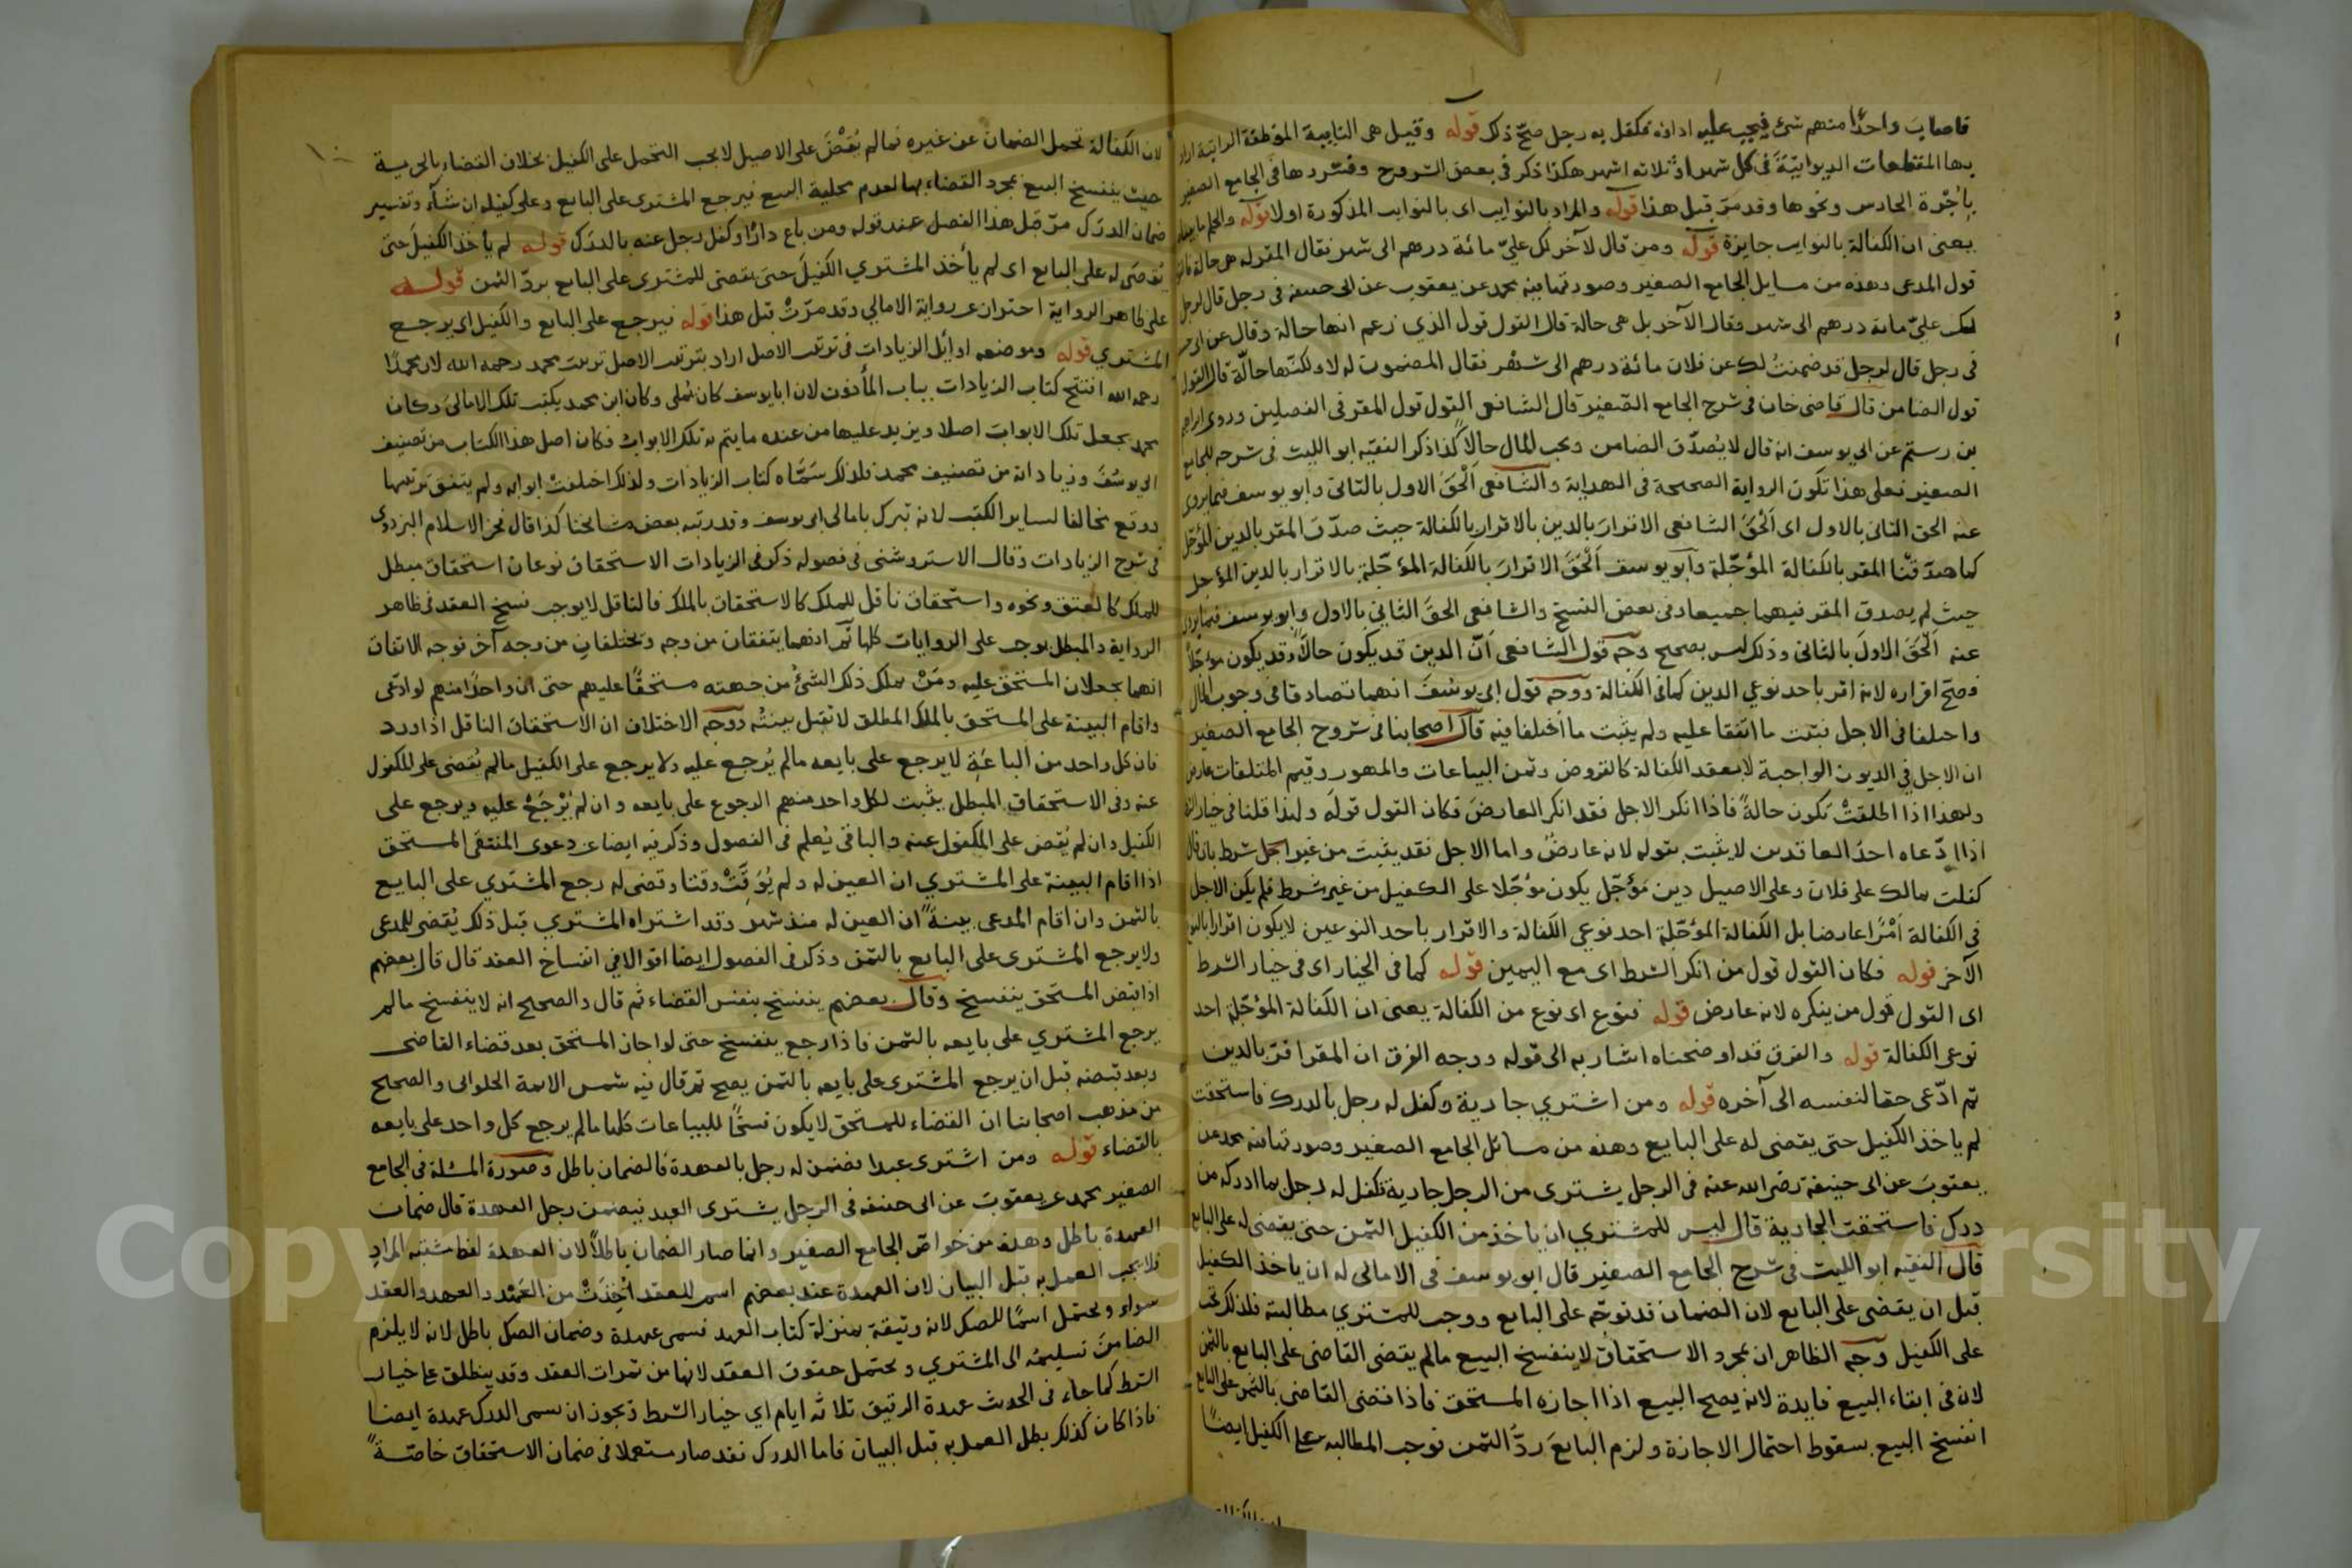 فاصاب واحدًا منهم شئ فيجب عليه اداؤه فكفل به رجل صحّ ذلك قوله وقيل هى النايبة الموظفة الراتبة اراد
بها المقطعات الديوانيّة فى كل شهر او ثلاثه اشهر هكذا ذكر فى بعض الشروح وفسّرها فى الجامع الصغير
بأجرة الحارس ونحوها وقد مرّ قبل هذا قوله والمراد بالنوايب اى بالنوايب المذكورة اولا قوله والحكم ما بيناه
يعنى ان الكفالة بالنوايب جايزة قوله ومن قال لآخر لك علىّ مائة درهم الى شهر فقال المقر له هى حالة فالقول
قول المدعى وهذه من مسايل الجامع الصغير وصورتها فيه محمد عن يعقوب عن ابى حنيفة فى رجل قال لرجل
لك علىّ مائة درهم الى شهر وقال الآخر بل هى حالة قال القول قول الذي زعم انها حالة وقال عن ابى
فى رجل قال لرجل قد ضمنتُ لك عن فلان مائة درهم الى شهر فقال المضمون له لا ولكنّها حالّة قال القول
قول الضامن قال قاضى خان فى شرح الجامع الصّغير قال الشافعى القول قول المقر فى الفصلين وروى ابراهيم
بن رستم عن ابى يوسف انه قال لا يُصدّق الضامن ويجب المال حالا كذا ذكر الفقيه ابو الليث فى شرحه للجامع
الصغير فعلى هذا تكون الرواية الصحيحة فى الهداية والشافعى اَلْحَقَ الاول بالثانى وابو يوسف فيما يروى
عنه الحق الثانى بالاول اى اَلْحَقَ الشافعى الاقرارَ بالدين بالاقرار بالكفالة حيث صدّق المقر بالدين المؤجّل
كما صدّقنا المقر بالكفالة المؤجّلة وابو يوسف اَلْحَقَ الاقرارَ بالكفالة المؤجّلة بالاقرار بالدين المؤجل
حيث لم يصدق المقر فيهما جميعا وفى بعض النسخ والشافعى الحقَ الثانى بالاول وابو يوسف فيما يروى
عنه اَلْحَقَ الاولَ بالثانى وذلك ليس بصحيح وجه قول الشافعى اَنّ الدين قد يكون حالّا وقد يكون مؤجّلاً
فصح اقراره لانه اقر باحد نوعي الدين كما فى الكفالة ووجه قول ابى يوسُفَ انهما تصادقا فى وجوب المال
واختلفا فى الاجل فيثبت ما اتفقا عليه ولم يثبت ما اختلفا فيه قال اصحابنا فى شروح الجامع الصغير
ان الاجل فى الديون الواجبة لا بعقد الكفالة كالقروض وثمن البياعات والمهور وقيم المتلفات عارض
ولهذا اذا اطلقتْ تكون حالةً فاذا انكر الاجل فقد انكر العارضَ فكان القول قولَه ولهذا قلنا فى خيار الشرط
اذا ادّعاه احدُ العاقدين لا يثبت بقوله لانه عارضٌ واما الاجل فقد يثبت من غير اجل شرط بان قال
كفلت بمالك على فلان وعلى الاصيل دين مؤجّل يكون مؤجّلا على الكفيل من غير شرط فلم يكن الاجل
فى الكفالة اَمْرًا عارضا بل الكفالة المؤجّلة احد نوعي الكفالة والاقرار باحد النوعين لا يكون اقرارا بالنوع
الآخر قوله فكان القول قول من انكر الشرط اى مع اليمين قوله كما فى الخيار اى فى خيار الشرط
اى القول قول من ينكره لانه عارض قوله فنوع اى نوع من الكفالة يعنى ان الكفالة المؤجّلة احد
نوعى الكفالة قوله والفرق قد اوضحناه اشار به الى قوله ووجه الفرق ان المقر اقرّ بالدين
ثم ادّعى حقا لنفسه الى آخره قوله ومن اشتري جارية وكفل له رجل بالدرك فاستحقت
لم ياخذ الكفيل حتى يقضى له على البايع وهذه من مسائل الجامع الصغير وصورتها فيه محمد عن
يعقوبَ عن ابى حنيفة رضى الله عنه فى الرجل يشترى من الرجل جارية فكفل له رجل بما ادركه من
درك فاستحقت الجارية قال ليس للمشتري ان ياخذ من الكفيل الثمن حتى يقضى له على البايع
قال الفقيه ابو الليث فى شرح الجامع الصغير قال ابو يوسف فى الامالى له ان ياخذ الكفيل
قبل ان يقضى على البايع لان الضمان قد توجّه على البايع ووجب للمشتري مطالبته فلذلك يجب
على الكفيل وجه الظاهر ان بمجرد الاستحقاق لا ينفسخ البيع مالم يقضى القاضى على البايع بالثمن
لان فى ابقاء البيع فايدة لانه يصح البيع اذا اجازه المستحق فاذا قضى القاضى بالثمن على البايع
انفسخ البيع بسقوط احتمال الاجازة ولزم البايعَ ردُّ الثمن فوجب المطالبه على الكفيل ايضًا
لان الكفالة تحمل الضمان عن غيره فمالم يُقْضَ على الاصيل لا يجب التحمل على الكفيل بخلاف القضاء بالحرية
حيث ينفسخ البيع بمجرد القضاء بها لعدم محلية البيع فيرجع المشترى على البايع وعلى كفيله ان شآء وتفسير
ضمان الدرَك مرّ قبل هذا الفصل عند قوله ومن باع دارًا وكفل رجل عنه بالدرَك قوله لم يأخذ الكفيلَ حتى
يُقضَى له على البايع اى لم يأخذ المشتري الكفيلَ حتى يقضى للمشترى على البايع بردّ الثمن قوله
على ظاهر الرواية احتراز عن رواية الامالي وقد مرّتْ قبل هذا قوله فيرجع على البايع والكفيل اى يرجع
المشتري قوله وموضعه اوايل الزيادات فى ترتيب الاصل اراد بترتيب الاصل ترتيب محمد رحمه الله لان محمدًا
رحمه الله افتتح كتاب الزيادات بباب المأذون لان ابا يوسف كان يُملى وكان ابن محمد يكتب تلك الامالىَ وكان
محمد يجعل تلك الابواب اصلا ويزيد عليها من عنده ما يتم به تلك الابواب فكان اصل هذا الكتاب من تصنيف
ابى يوسُفَ وزياداته من تصنيف محمد فلذلك سمّاه كتاب الزيادات ولذلك اختلفتْ ابوابه ولم يتفق ترتيبها
ووقع مخالفا لساير الكتب لانه تبرك بامالى ابى يوسف وقد رتبه بعض مشايخنا كذا قال فخر الاسلام البزدوى
فى شرح الزيادات وقال الاستروشنى فى فصوله ذكر فى الزيادات الاستحقاق نوعان استحقاق مبطل
للملك كالعتق ونحوه واستحقاق ناقل للملك كالاستحقاق بالملك فالناقل لا يوجب فسخ العقد فى ظاهر
الرواية والمبطل يوجب على الروايات كلها ثم انهما يتفقان من وجه ويختلفان من وجه آخر فوجه الاتفاق
انهما يجعلان المستحق عليه ومَنْ يملك ذلك الشئ من جهته مستحقًا عليهم حتى ان واحدًا منهم لو ادّعى
واقام البينة على المستحق بالملك المطلق لا تقبل بينتُه ووجه الاختلاف ان الاستحقاق الناقل اذا ورد
فان كل واحد من الباعَةِ لا يرجع على بايعه مالم يُرجع عليه ولا يرجع على الكفيل مالم يُقضى على المكفول
عنه وفى الاستحقاق المبطل يثبت لكل واحد منهم الرجوع على بايعه وان لم يُرْجَعْ عليه ويرجع على
الكفيل وان لم يُقض على المكفول عنه والباقى يُعلم فى الفصول وذكر فيه ايضا عن دعوى المنتقى المستحق
اذا اقام البينة على المشتري ان العين له ولم يُوَقِّتْ وقتا وقضى له رجع المشتري على البايع
بالثمن وان اقام المدعى بينةً ان العين له منذ شهر وقد اشتراه المشتري قبل ذلك يُقضى للمدعى
ولا يرجع المشترى على البايع بالثمن وذكر فى الفصول ايضا اقوالا فى انفساخ العقد قال قال بعضهم
اذا قبض المستحق ينفسخ وقال بعضهم ينفسخ بنفس القضاء ثم قال والصحيح انه لا ينفسخ مالم
يرجع المشتري على بايعه بالثمن فاذا رجع ينفسخ حتى لو اجاز المستحق بعد قضاء القاضى
وبعد قبضه قبل ان يرجع المشترى على بايعه بالثمن يصح ثم قال فيه شمس الائمة الحلوانى والصحيح
من مذهب اصحابنا ان القضاء للمستحق لا يكون فسخًا للبياعات كلها مالم يرجع كل واحد على بايعه
بالقضاء قوله ومن اشترى عبدا فضمن له رجل بالعهدة فالضمان باطل وصورة المسئلة فى الجامع
الصغير محمد عن يعقوبَ عن ابى حنيفة فى الرجل يشترى العبد فيضمن رجل العهدة قال ضمان
العهدة باطل وهذه من خواصّ الجامع الصغير وانما صار الضمان باطلاً لان العهدة لفظ مشتبه المراد
فلا يجب العمل به قبل البيان لان العهدة عند بعضهم اسم للعقد اُخِذَتْ من العَهْد والعهد والعقد
سواء ويحتمل اسمًا للصك لانه وثيقة بمنزلة كتاب العهد فسمى عهدة وضمان الصك باطل لانه لا يلزم
الضامنَ تسليمُه الى المشتري ويحتمل حقوق العقد لانها من ثمرات العقد وقد ينطلق على خيار
الشرط كما جاء فى الحديث عهدة الرقيق ثلاثه ايام اي خيار الشرط ويجوز ان يسمى الدرك عهدة ايضا
فاذا كان كذلك بطل العمل به قبل البيان فاما الدرك فقد صار مستعملا فى ضمان الاستحقاق خاصّةً
Copyright © King Saud University